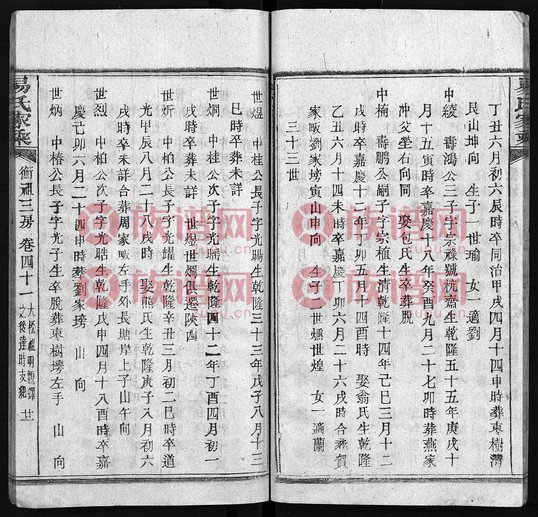 丁丑六月初六辰時卒同治甲戌四月十四申時葬東樹灣
艮山坤向 生子一世瑜 女一適劉
中綾 壽鴻公三子字宗祿號沈齋生乾隆五十五年庚戌十
月十五寅時卒嘉慶十八年癸酉九月二十七卯時葬燕家
冲父塋右向同 娶包氏生卒葬脫
中楠 壽鵬公嗣子字宗植生清乾隆十四年己巳三月十二
戌時卒嘉慶十 卯五月十四酉時 娶翁氏生乾隆
乙丑六月十四未時卒嘉慶丁卯六月二十六戌時合葬賀
家畈劉家塝寅山申向 生子二世爌世煌 女一適蘭
三十三世
世煜 中桂公長子字光暘生乾隆三十三年戊子八月十三
巳時卒葬未詳
世炯 中桂公次子字光 生乾隆四十二年丁酉四月初一
戌時卒葬未詳 世煜世炯俱遷陝西
世炘 中柏公長子字光耀生乾隆辛丑三月初二巳時卒道
光甲辰八月二十八戌時 娶熊氏生乾隆庚子八月初六
戌時卒未詳合葬周家畈左手外長塘岸上子山午向
世烈 中柏公次子字光 生乾隆戊申四月十八酉時卒嘉
慶己卯六月二十四申時葬劉家塝 山 向
世炳 中椿公長子字光子生卒脫葬東樹塝左手 山 向
易氏家乘 衡祖三房 卷四十一 大松祖明 鐸
之後達時支總 廿
族譜網
zupu.cn